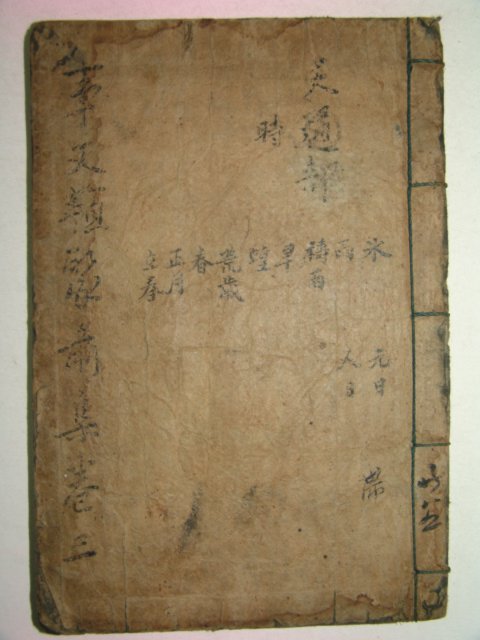 天道部
時
氷
雨
禱雨
旱
蝗
荒歲
春
正月
立春
元日
人日
事文類聚前集卷三